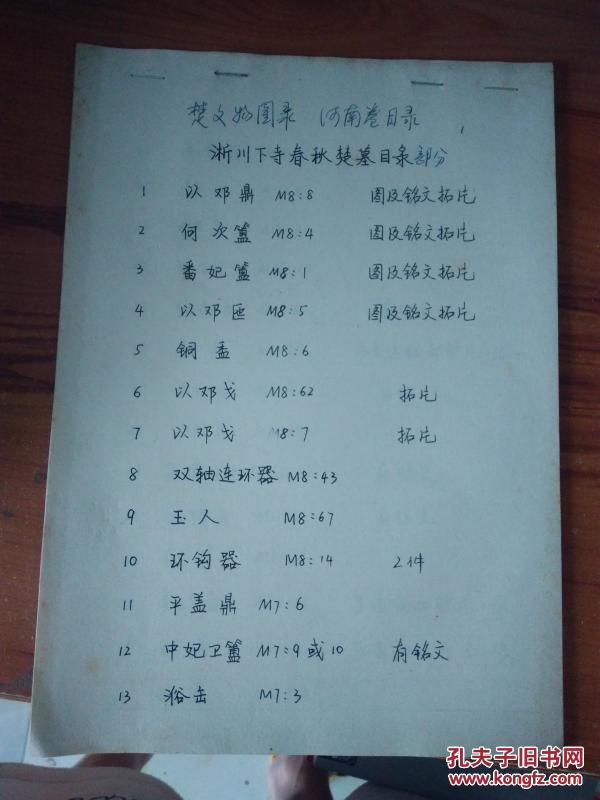 楚文物图录 河南卷目录
1
淅川下寺春秋楚墓目录部分
1 以邓鼎 M8:8 图及铭文拓片
2 何次簠 M8:4 图及铭文拓片
3 番妃簠 M8:1 图及铭文拓片
4 以邓匜 M8:5 图及铭文拓片
5 铜盂 M8:6
6 以邓戈 M8:62 拓片
7 以邓戈 M8:7 拓片
8 双轴连环器 M8:43
9 玉人 M8:67
10 环钩器 M8:14 2件
11 平盖鼎 M7:6
12 中妃卫簠 M7:9或10 有铭文
13 浴缶 M7:3
孔夫子旧书网
www.kongfz.com